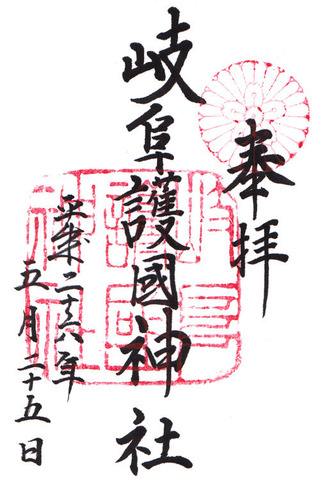 奉拝
岐阜護國神社
平成二十六年
五月二十五日